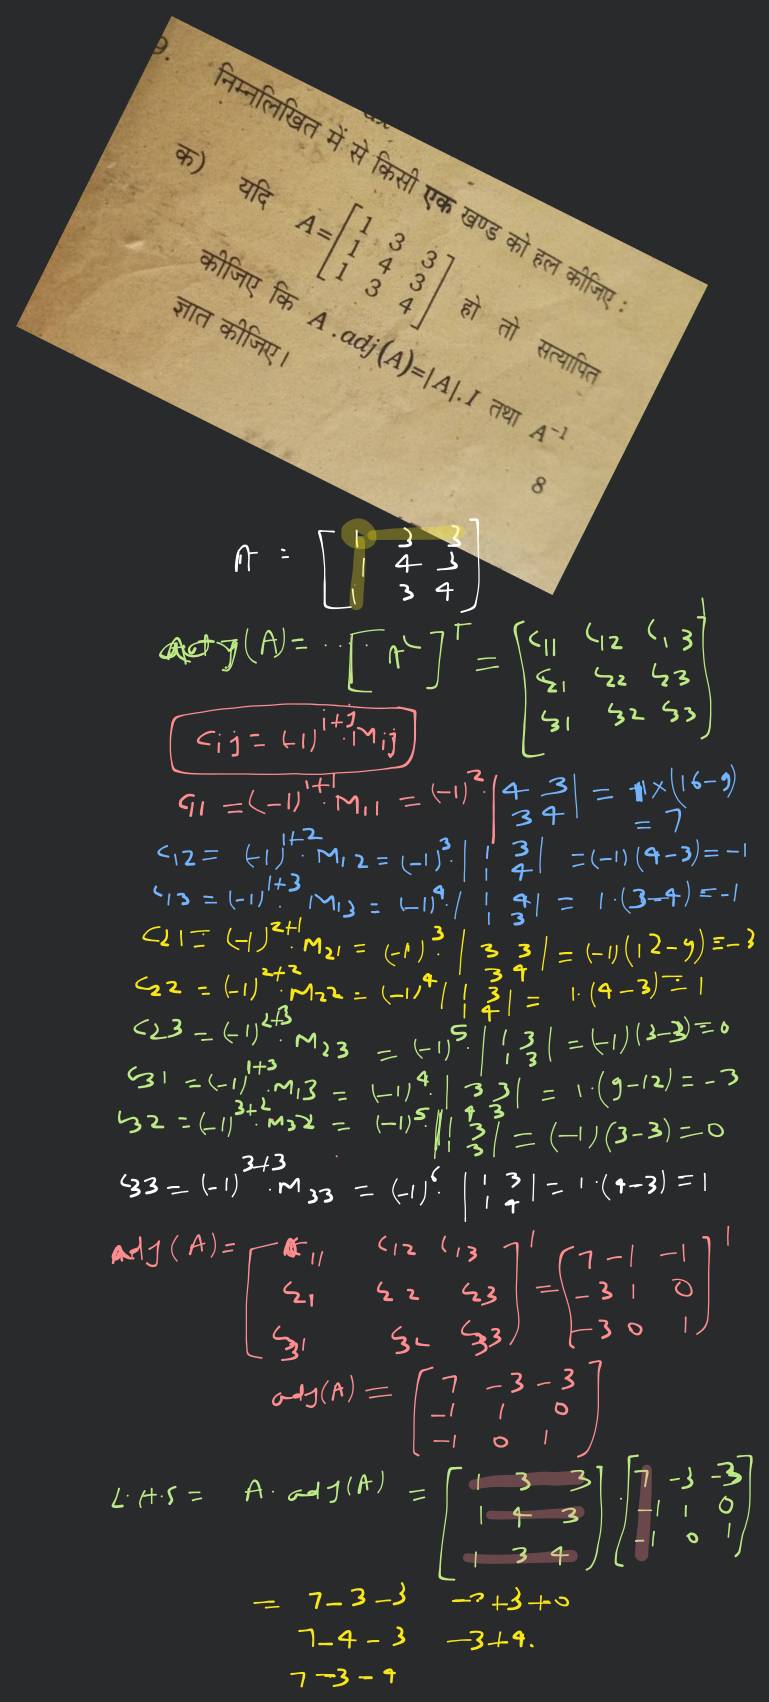 9.
निम्नलिखित में से किसी एक खण्ड को हल कीजिए :
क) यदि A=[1 3 3
1 4 3
1 3 4] हो तो सत्यापित
कीजिए कि A.adj(A)=|A|.I तथा A⁻¹
ज्ञात कीजिए।
8
A = [1 3 3
1 4 3
1 3 4]
adj(A) = ..... [Aᶜ]ᵀ = [C11 C12 C13
C21 C22 C23
C31 C32 C33]
Cij = (-1)^(i+j).Mij
C11 = (-1)^(1+1).M11 = (-1)².|4 3
3 4| = 1×(16-9)
= 7
C12 = (-1)^(1+2).M12 = (-1)³.|1 3
1 4| = (-1)(4-3) = -1
C13 = (-1)^(1+3).M13 = (-1)⁴.|1 4
1 3| = 1.(3-4) = -1
C21 = (-1)^(2+1).M21 = (-1)³.|3 3
3 4| = (-1)(12-9) = -3
C22 = (-1)^(2+2).M22 = (-1)⁴.|1 3
1 4| = 1.(4-3) = 1
C23 = (-1)^(2+3).M23 = (-1)⁵.|1 3
1 3| = (-1)(3-3) = 0
C31 = (-1)^(1+3).M13 = (-1)⁴.|3 3
4 3| = 1.(9-12) = -3
C32 = (-1)^(3+2).M32 = (-1)⁵.|1 3
1 3| = (-1)(3-3) = 0
C33 = (-1)^(3+3).M33 = (-1)⁶.|1 3
1 4| = 1.(4-3) = 1
adj(A) = [C11 C12 C13
C21 C22 C23
C31 C32 C33]' = [7 -1 -1
-3 1 0
-3 0 1]'
adj(A) = [7 -3 -3
-1 1 0
-1 0 1]
L.H.S = A.adj(A) = [1 3 3
1 4 3
1 3 4].[7 -3 -3
-1 1 0
-1 0 1]
= 7-3-3 -3+3+0
7-4-3 -3+4.
7-3-4